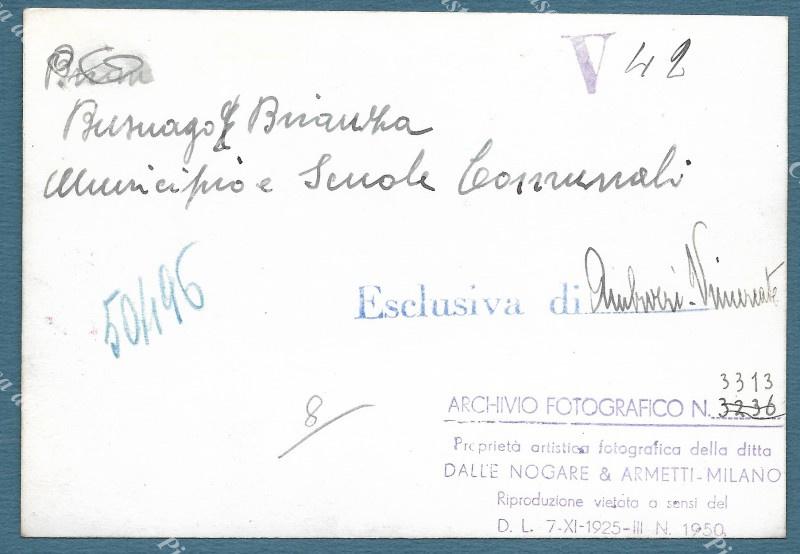 V 42
Busnago Brianza
Municipio e Scuole Comunali
50/196
Esclusiva di Ambrosi-Vimercate
8/
3313
ARCHIVIO FOTOGRAFICO N. 3236
Proprietà artistica fotografica della ditta
DALLE NOGARE & ARMETTI-MILANO
Riproduzione vietata a sensi del
D. L. 7-XI-1925-III N. 1950